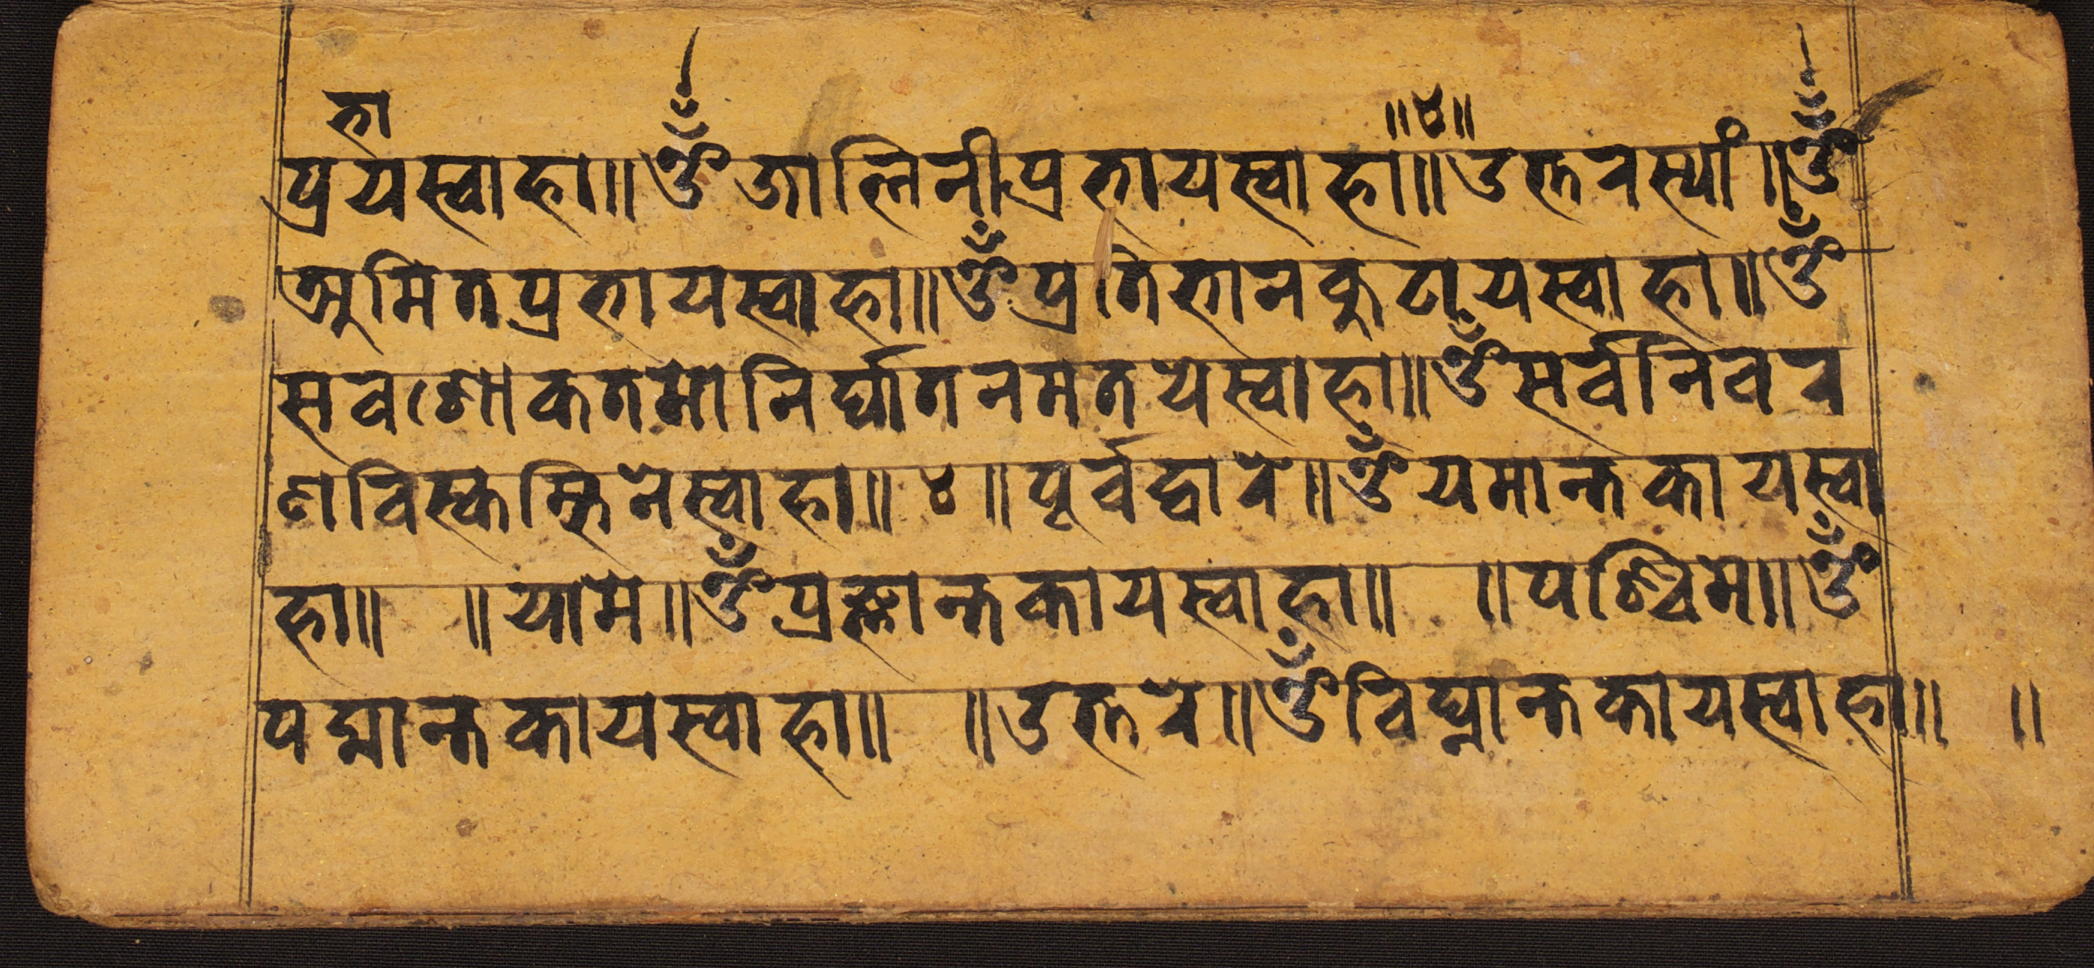 भा
प्रयस्वाहा॥ॐ जालिनीप्रभायस्वाहा॥ ॥४॥ उत्तरस्यां॥ॐ
अमितप्रभायस्वाहा॥ॐ प्रतिभानकुटायस्वाहा॥ॐ
सवशोकतमोनिर्घातनमतयेस्वाहा॥ॐ सर्वनिवर
णविस्कम्भिनेस्वाहा॥ ४ ॥पूर्वद्वारे॥ॐ यमान्तकायस्वा
हा॥ ॥यामे॥ॐ प्रज्ञान्तकायस्वाहा॥ ॥पश्चिमे॥ॐ
पद्मान्तकायस्वाहा॥ ॥उत्तरे॥ॐ विघ्नान्तकायस्वाहा॥ ॥